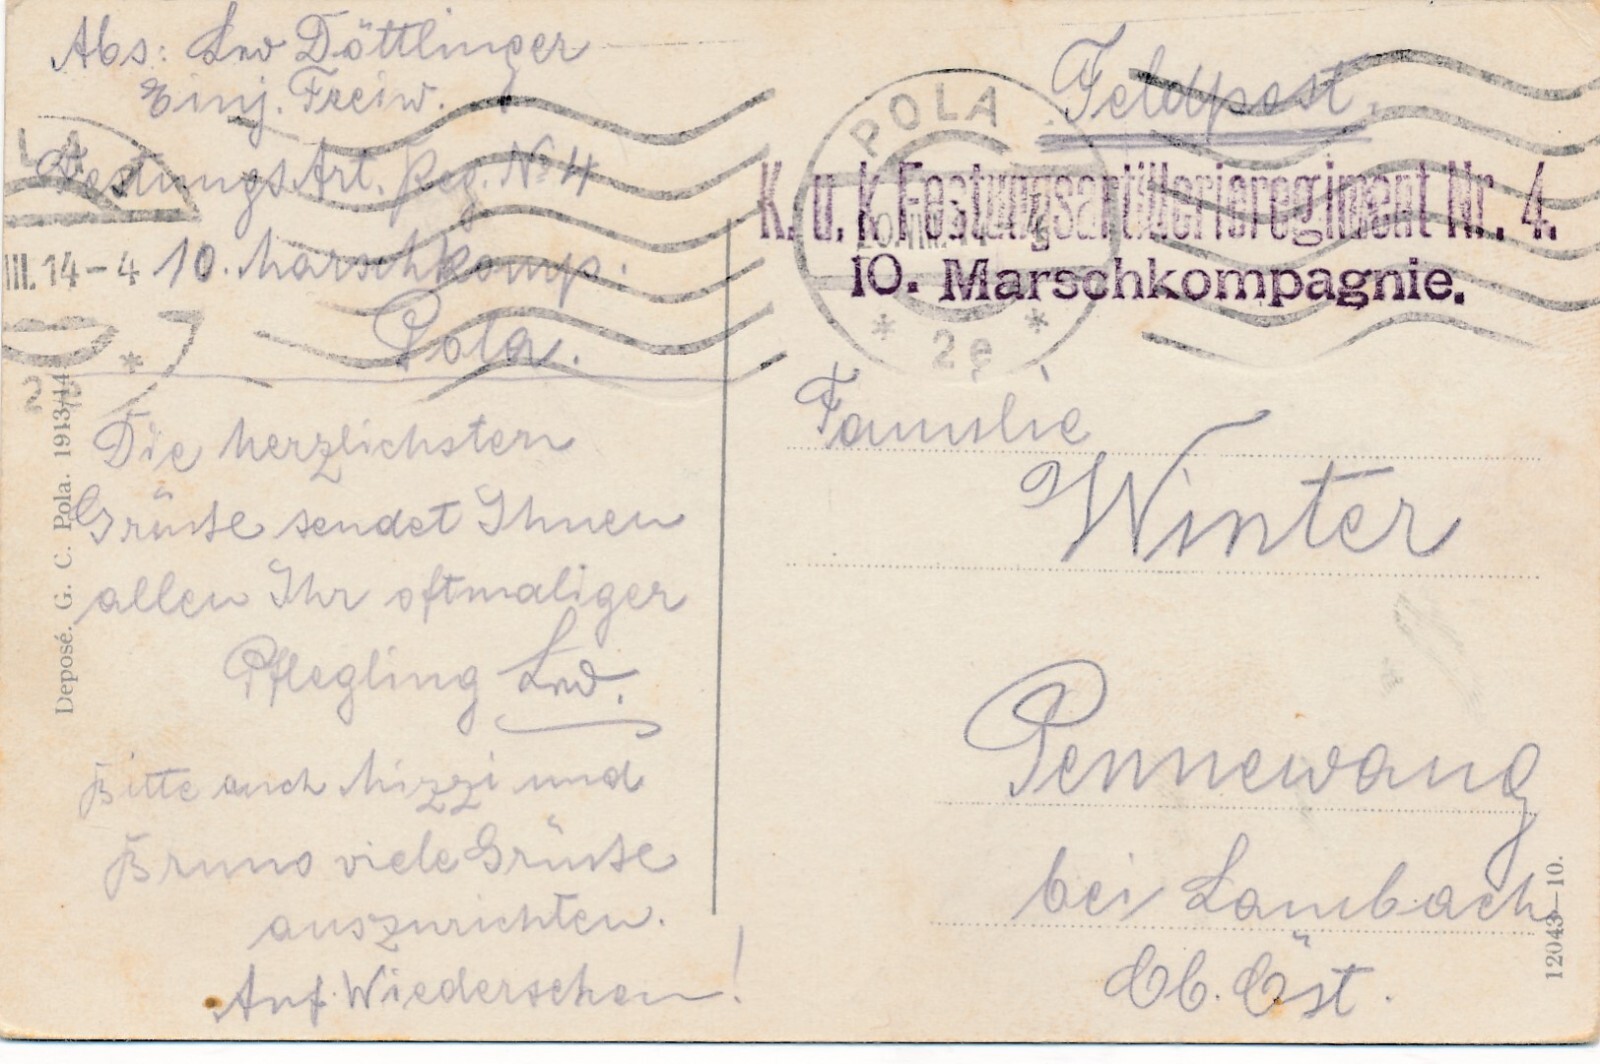 Abs: Leo Döttlinger
Einj. Freiw.
Festungs Art. Reg. No 4
10. Marschkomp.
Pola.
Die herzlichsten
Grüße sendet Ihnen
allen Ihr oftmaliger
Pflegling Leo.
Bitte auch Mizzi und
Bruno viele Grüße
auszurichten.
Auf Wiedersehen!
Feldpost.
K. u. k. Festungsartillerieregiment Nr. 4.
10. Marschkompagnie.
POLA
VIII.14-4
* 2e *
LA
III.14-4
*
Familie
Winter
Pennewang
bei Lambach
Ob. Öst.
Deposé. G. C. Pola. 1913/14
12043-10.